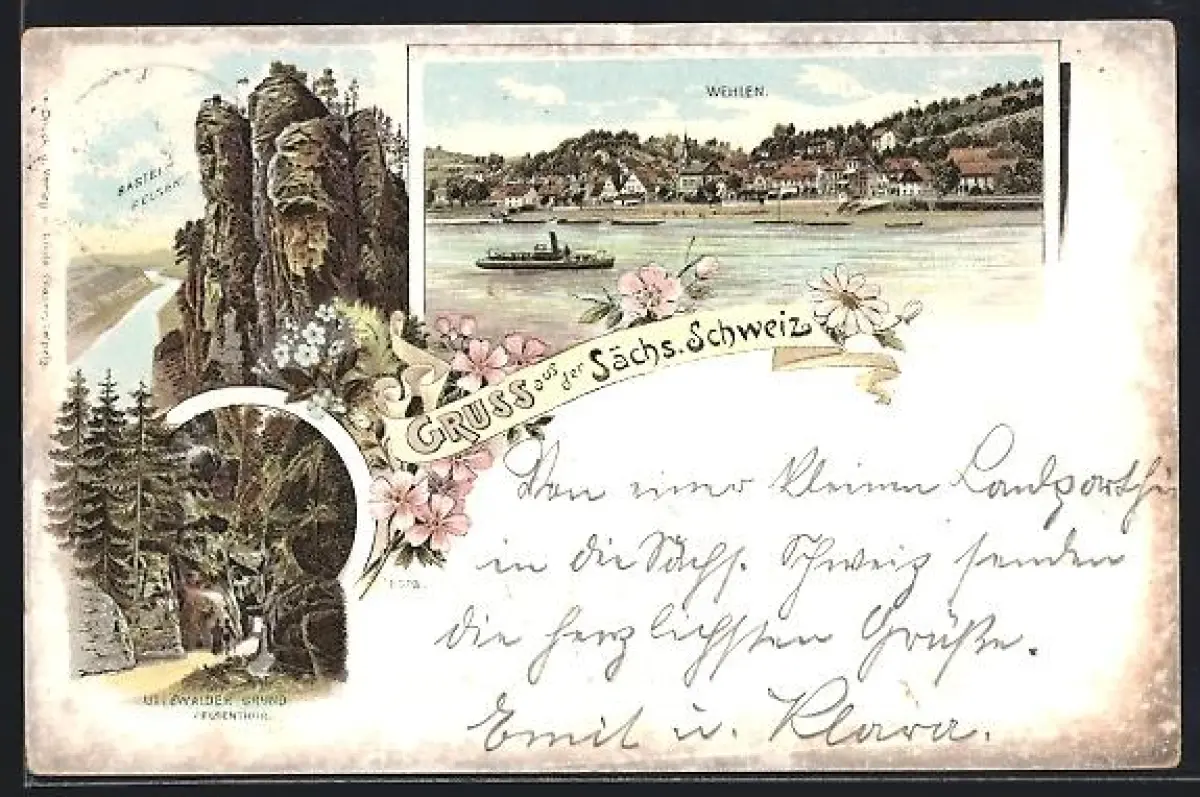 BASTEI
FELSEN
WEHLEN.
GRUSS aus der Sächs. Schweiz
UTTEWALDER GRUND
FELSENTHOR.
Von einer kleinen Landparthie
in die Sächs. Schweiz senden
die herzlichsten Grüße.
Emil u. Klara.